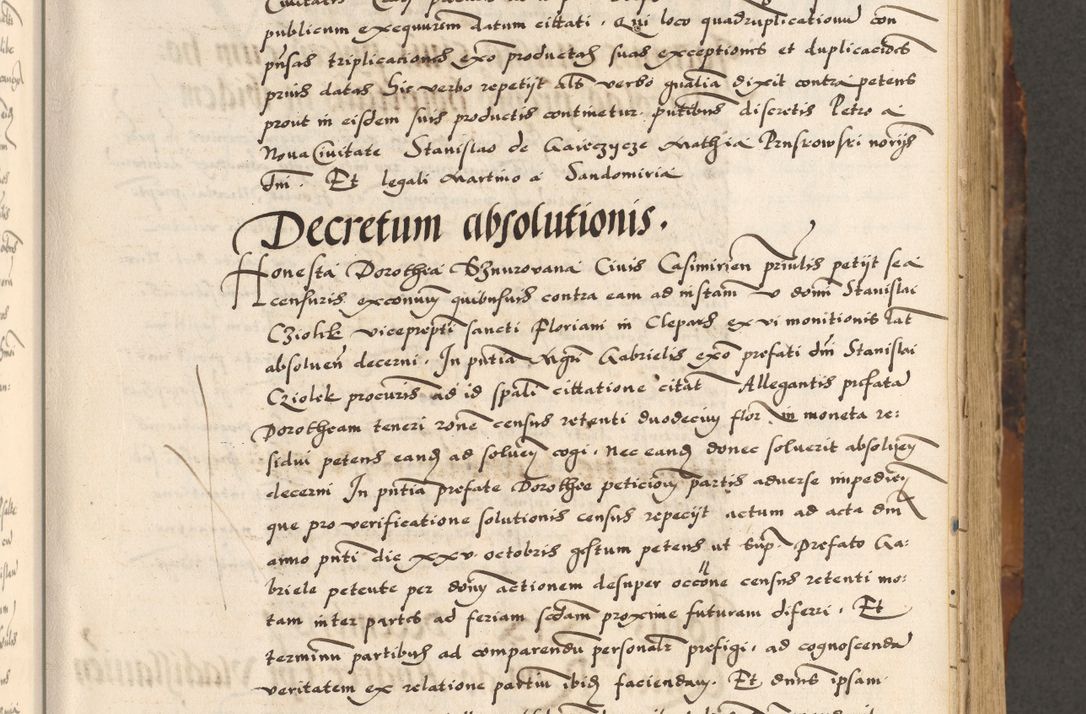 publicum exequurem datum cittati. Qui loco quadruplicationū con
pñsas triplicationes exo productas suas exceptiones et duplicacões
prius datas Sic verbo repetijt als verbo gnalia dixit contra petens
prout in eisdem suis productis continetur. pñtibus discretis Petro a
Nova Civitate Stanislao de Mathia norijs
dni. Et legali Martino a Sandomiria
Decretum absolutionis.
Honesta Dorothea Sznurovana Civis Casimirien prñlis petijt se a
censuris exconum quibusuis contra eam ad instam v domi Stanislai
Cziolek viceprepti sancti Floriani in Clepars ex vi monitionis lat
absolven decerni. In pñtia Mgri Gabrielis exo prefati dni Stanislai
Cziolek procuris ad id spali cittatione citat Allegantis prefata
Dorotheam teneri rone census retenti duodecim flor in moneta re:
sidui petens eand ad solven cogi. nec eand donec solverit absolven
decerni In pñtia prefate Dorothee peticiom partis adverse impedien
que pro verificatione solutionis census repecijt actum ad acta dni
anno pñti die xxv. octobris gestum petens ut sup. Prefato Ga:
briele petente per dom actionem desuper occone census retenti mo:
tam inter partes ad feriam scdam proxime futuram differi. Et
terminū partibus ad comparendū personalr prefigi. ad cognoscendā
veritatem ex relatione partiū ibid faciendam. Et dnus ipsam